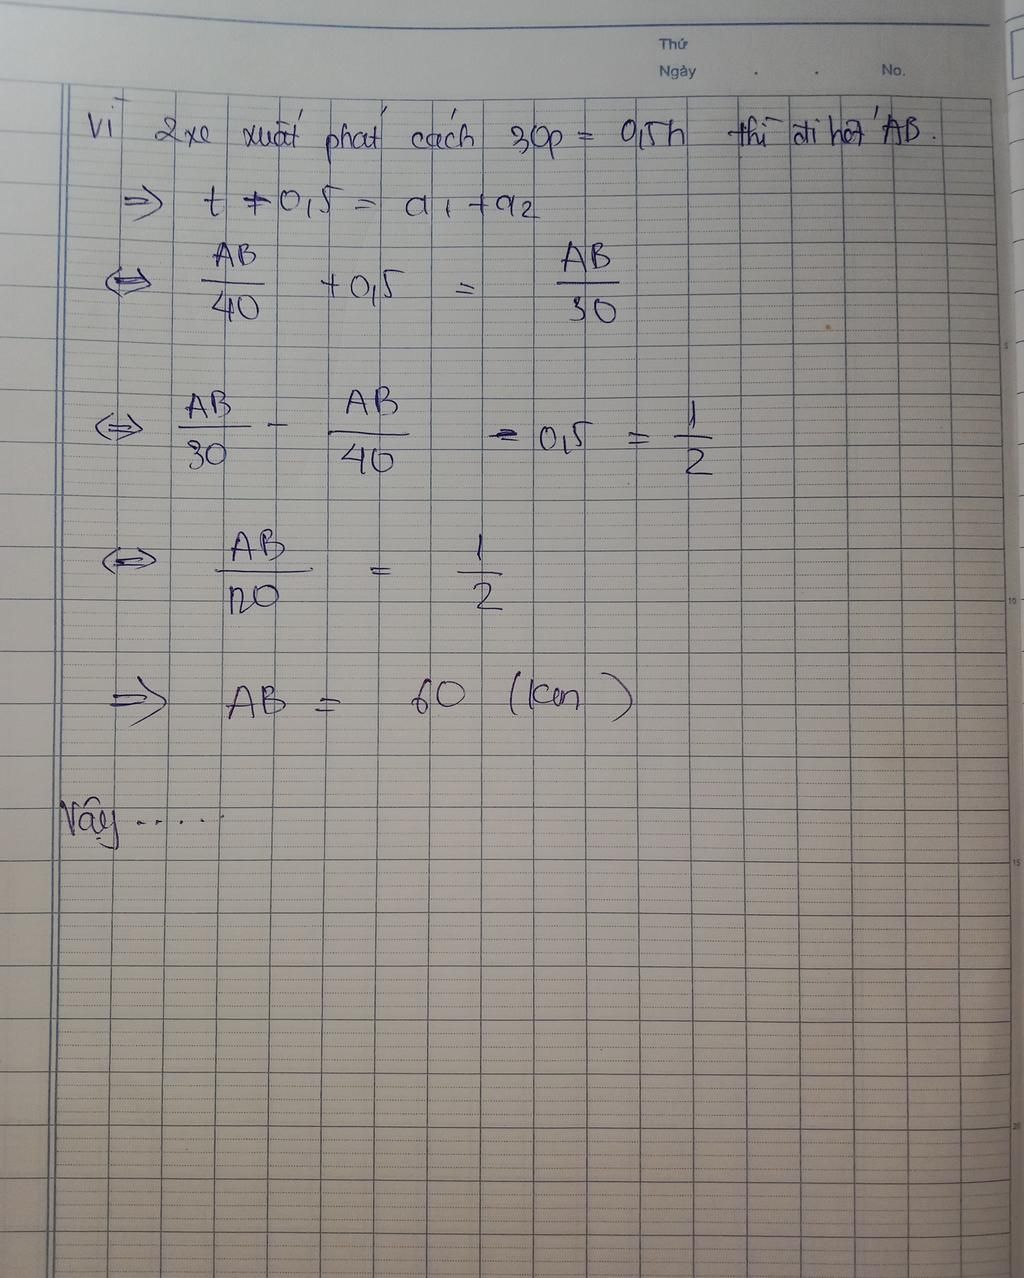 Thứ
Ngày . . No.
Vì 2 xe xuất phát cách 30p = 0,5h thì đi hết AB.
=> t + 0,5 = a1 + a2
<=> AB/40 + 0,5 = AB/30
<=> AB/30 - AB/40 = 0,5 = 1/2
<=> AB/120 = 1/2
=> AB = 60 (km)
Vậy .....
5
10
15
20